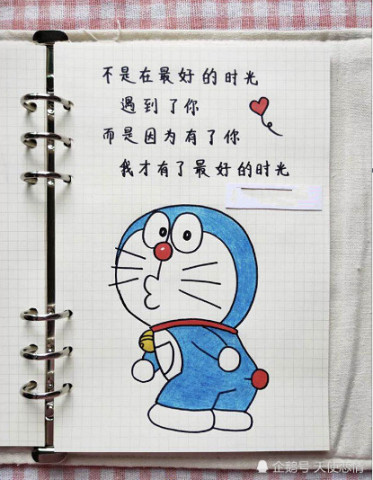 不是在最好的时光
遇到了你
而是因为有了你
我才有了最好的时光
企鹅号 天使恋情